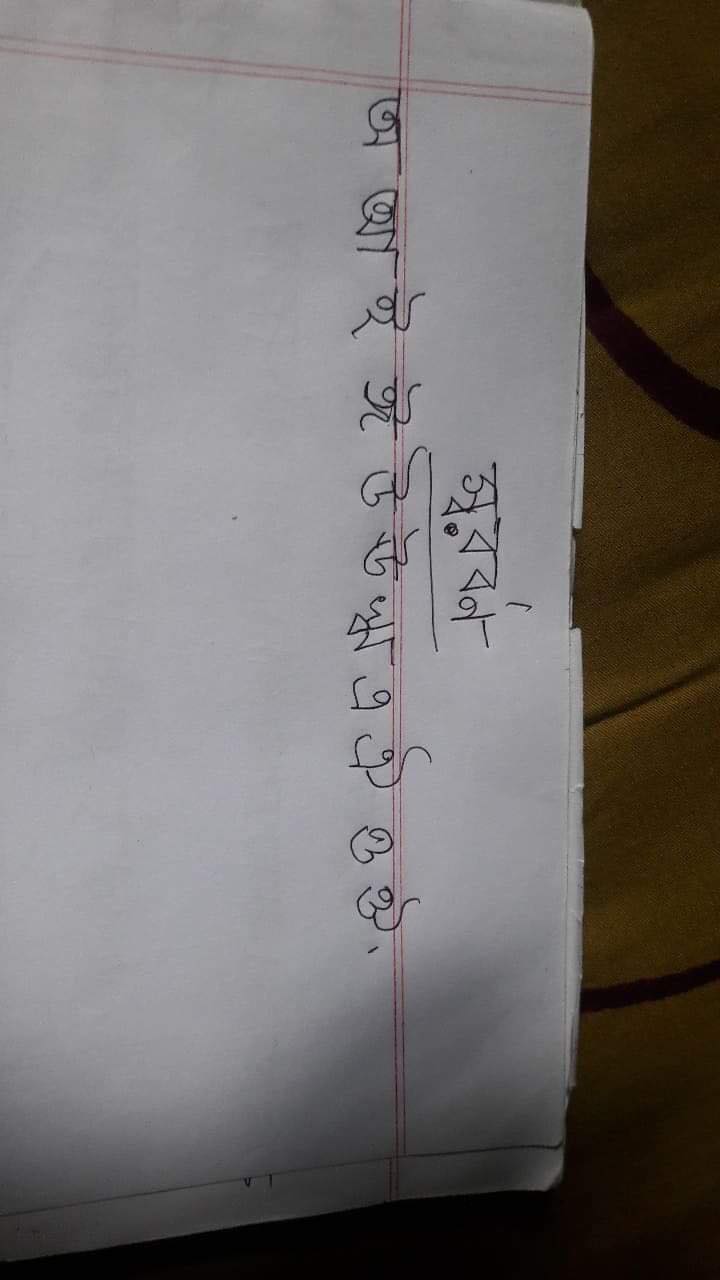 স্বরবর্ণ
অ আ ই ঈ উ ঊ ঋ এ ঐ ও ঔ